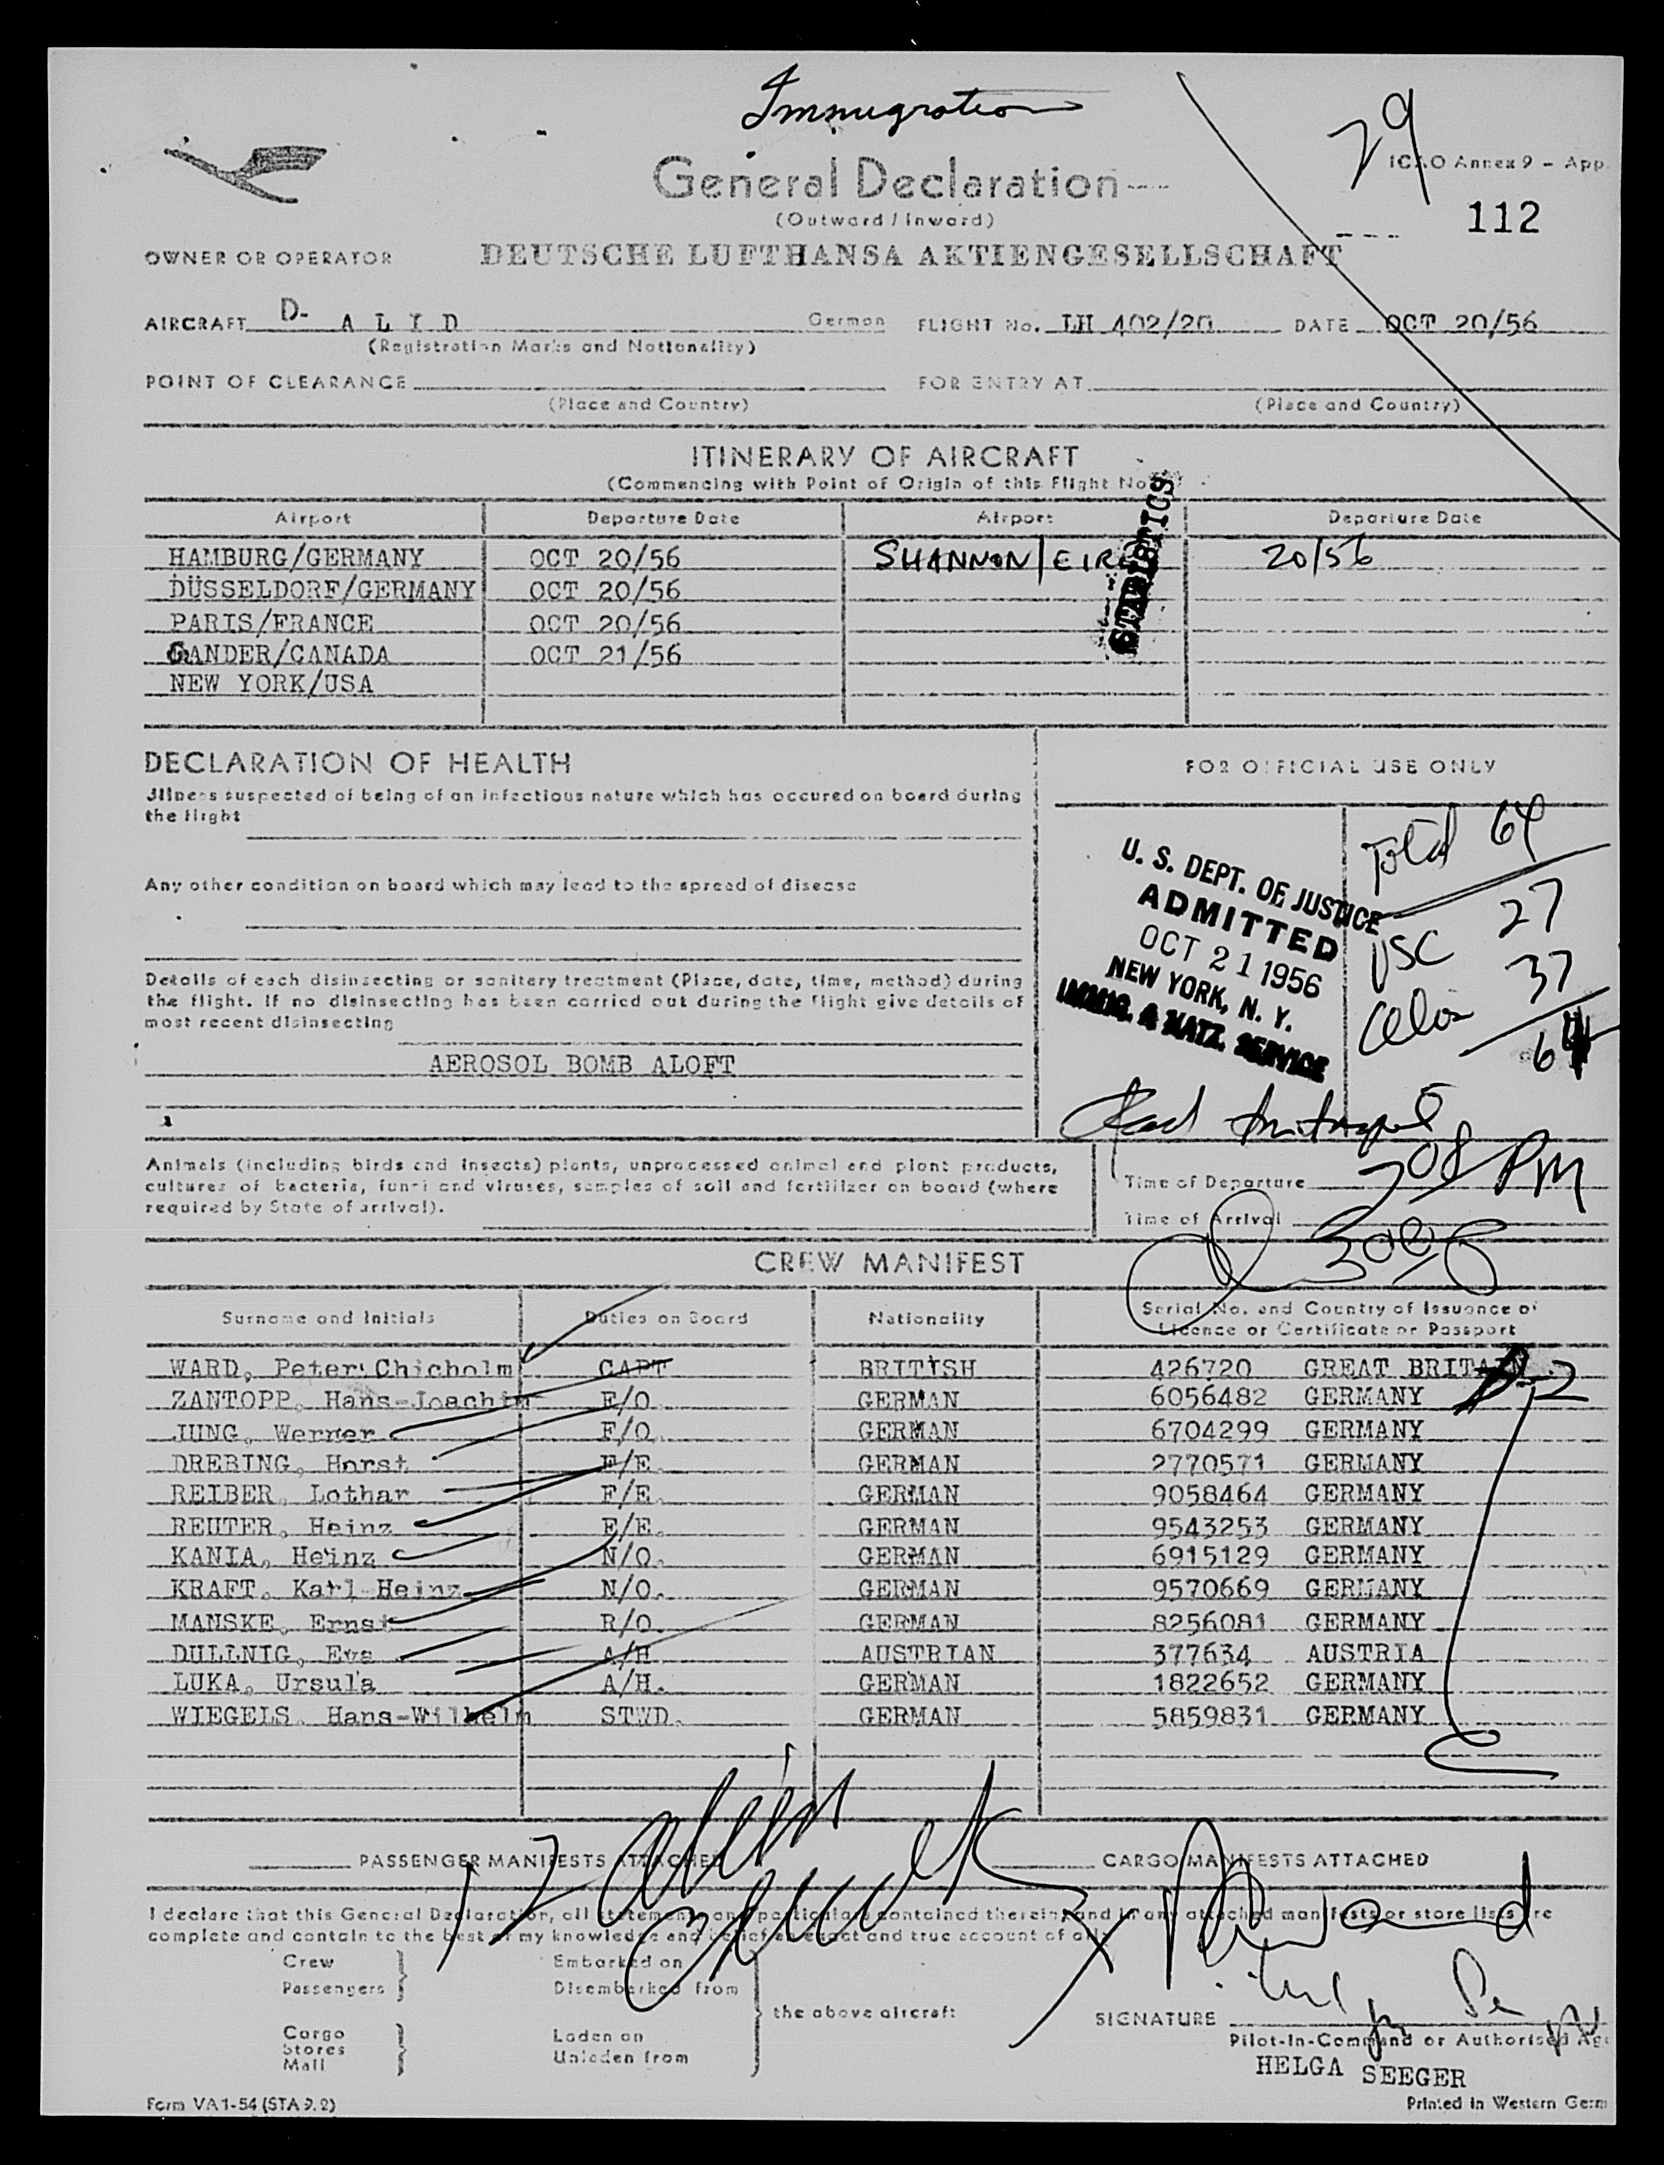 Immigration
29
ICAO Annex 9 – App.
General Declaration
(Outward / Inward)
112
OWNER OR OPERATOR DEUTSCHE LUFTHANSA AKTIENGESELLSCHAFT
AIRCRAFT D- A L I D German FLIGHT No. LH 402/20 DATE OCT 20/56
(Registration Marks and Nationality)
POINT OF CLEARANCE FOR ENTRY AT
(Place and Country) (Place and Country)
ITINERARY OF AIRCRAFT
(Commencing with Point of Origin of this Flight No
STATISTICS
Airport Departure Date Airport Departure Date
HAMBURG/GERMANY OCT 20/56 SHANNON/EIRE 20/56
DÜSSELDORF/GERMANY OCT 20/56
PARIS/FRANCE OCT 20/56
GANDER/CANADA OCT 21/56
NEW YORK/USA
DECLARATION OF HEALTH
Illness suspected of being of an infectious nature which has occured on board during
the flight
Any other condition on board which may lead to the spread of disease
Details of each disinsecting or sanitary treatment (Place, date, time, method) during
the flight. If no disinsecting has been carried out during the flight give details of
most recent disinsecting
AEROSOL BOMB ALOFT
FOR OFFICIAL USE ONLY
U. S. DEPT. OF JUSTICE
ADMITTED
OCT 21 1956
NEW YORK, N. Y.
IMMIG. & NATZ. SERVICE
Total 64
USC 27
37
64
Animals (including birds and insects) plants, unprocessed animal and plant products,
cultures of bacteria, fungi and viruses, samples of soil and fertilizer on board (where
required by State of arrival).
Time of Departure 308 PM
Time of Arrival
CREW MANIFEST
Surname and Initials Duties on Board Nationality Serial No. and Country of Issuance of
Licence or Certificate or Passport
WARD, Peter Chicholm CAPT BRITISH 426720 GREAT BRITAIN
ZANTOPP, Hans-Joachim F/O. GERMAN 6056482 GERMANY
JUNG, Werner F/O. GERMAN 6704299 GERMANY
DREBING, Horst F/E. GERMAN 2770571 GERMANY
REIBER, Lothar F/E. GERMAN 9058464 GERMANY
REUTER, Heinz F/E. GERMAN 9543253 GERMANY
KANIA, Heinz N/O. GERMAN 6915129 GERMANY
KRAFT, Karl-Heinz N/O. GERMAN 9570669 GERMANY
MANSKE, Ernst R/O. GERMAN 8256081 GERMANY
DULLNIG, Eva A/H AUSTRIAN 377634 AUSTRIA
LUKA, Ursula A/H. GERMAN 1822652 GERMANY
WIEGELS, Hans-Wilhelm STWD. GERMAN 5859831 GERMANY
12 alien crew
PASSENGER MANIFESTS ATTACHED CARGO MANIFESTS ATTACHED
I declare that this General Declaration, all statements and particulars contained therein, and in any attached manifests or store lists are
complete and contain to the best of my knowledge and belief an exact and true account of all
Crew Embarked on
Passengers Disembarked from
the above aircraft
Cargo Laden on
Stores
Mail Unladen from
SIGNATURE
Pilot-In-Command or Authorised Age
HELGA SEEGER
Form VA 1-54 (STA 9.2) Printed in Western Germ